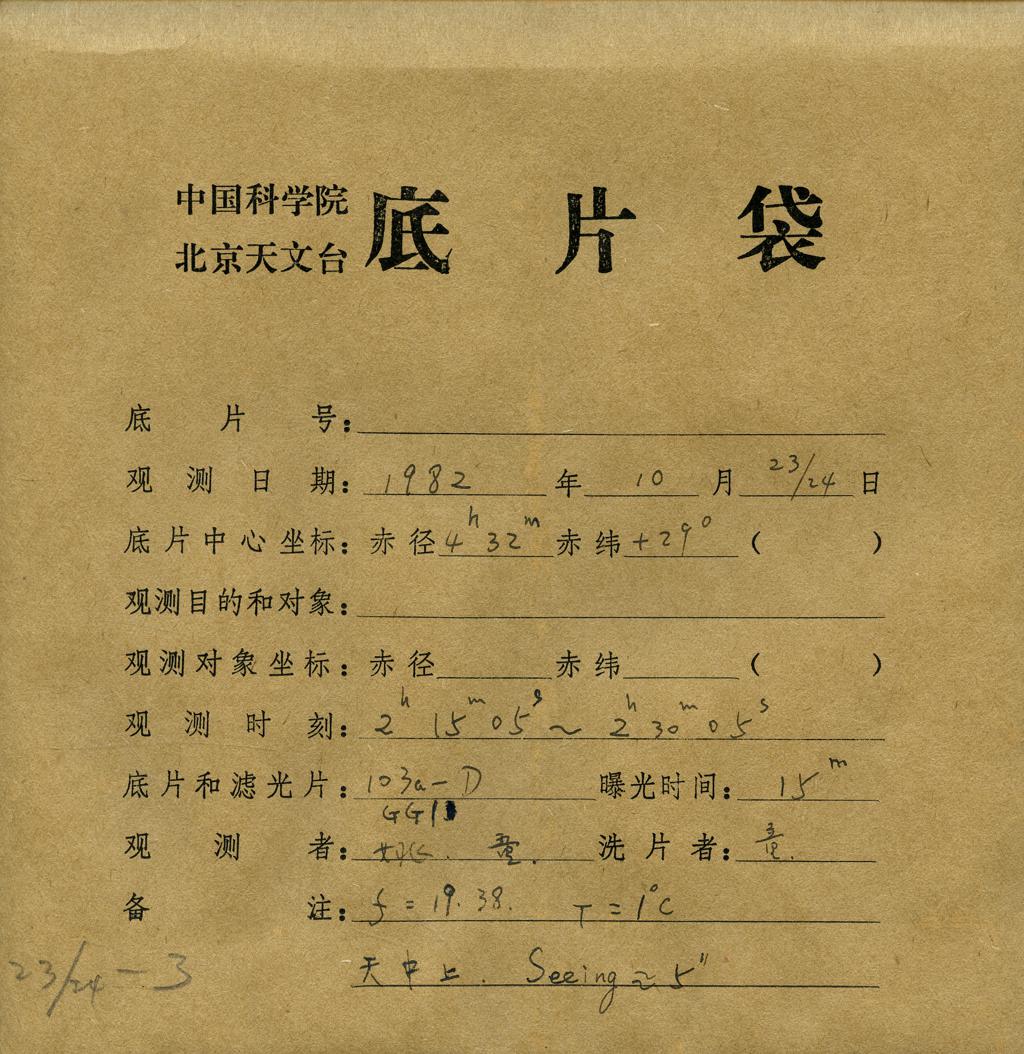 中国科学院
北京天文台 底片袋
底片号：
观测日期： 1982 年 10 月 23/24 日
底片中心坐标：赤径 4h 32m 赤纬 +29° （ ）
观测目的和对象：
观测对象坐标：赤径 赤纬 （ ）
观测时刻： 2h 15m 05s ~ 2h 30m 05s
底片和滤光片： 103a-D 曝光时间： 15m
GG11
观测者： 姚. 童. 洗片者： 童.
备注： f = 19.38. T = 1°C
天中上. Seeing ≈ 5"
23/24-3